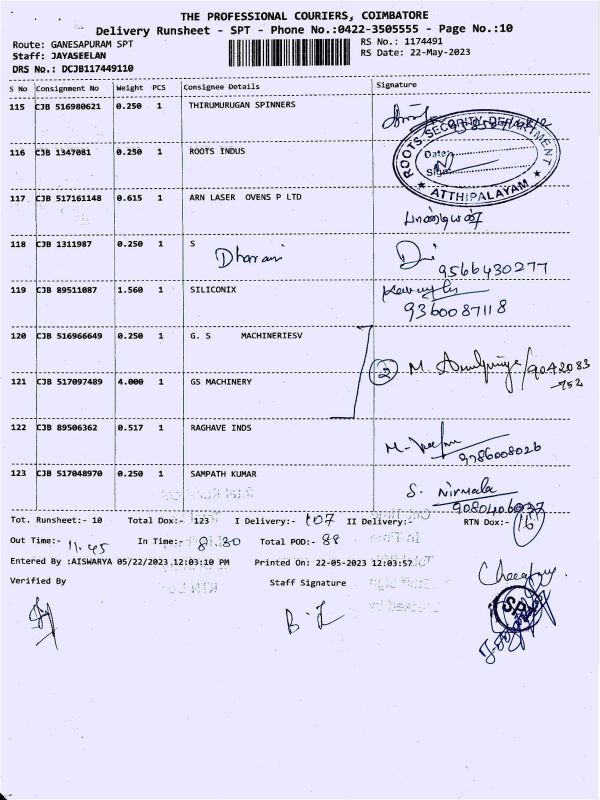 THE PROFESSIONAL COURIERS, COIMBATORE
Delivery Runsheet - SPT - Phone No.:0422-3505555 - Page No.:10
Route: GANESAPURAM SPT
RS No.: 1174491
Staff: JAYASEELAN
RS Date: 22-May-2023
DRS No.: DCJB117449110
S No Consignment No Weight PCS Consignee Details Signature
115 CJB 516980621 0.250 1 THIRUMURUGAN SPINNERS
116 CJB 1347081 0.250 1 ROOTS INDUS
ROOTS SECURITY DEPARTMENT
Date:
Sign
★ ATTHIPALAYAM ★
117 CJB 517161148 0.615 1 ARN LASER OVENS P LTD
பாண்டியன்
118 CJB 1311987 0.250 1 S
Dharani
9566430277
119 CJB 89511087 1.560 1 SILICONIX
9360087118
120 CJB 516966649 0.250 1 G. S MACHINERIESV
2 M. /9042083
752
121 CJB 517097489 4.000 1 GS MACHINERY
122 CJB 89506362 0.517 1 RAGHAVE INDS
9786008026
123 CJB 517048970 0.250 1 SAMPATH KUMAR
S. Nirmala
Tot. Runsheet:- 10 Total Dox:- 123 I Delivery:- 107 II Delivery:- RTN Dox:- 16
Out Time:- 11.45 In Time:- 8.30 Total POD:- 88
Entered By :AISWARYA 05/22/2023 12:03:10 PM Printed On: 22-05-2023 12:03:57
Verified By Staff Signature